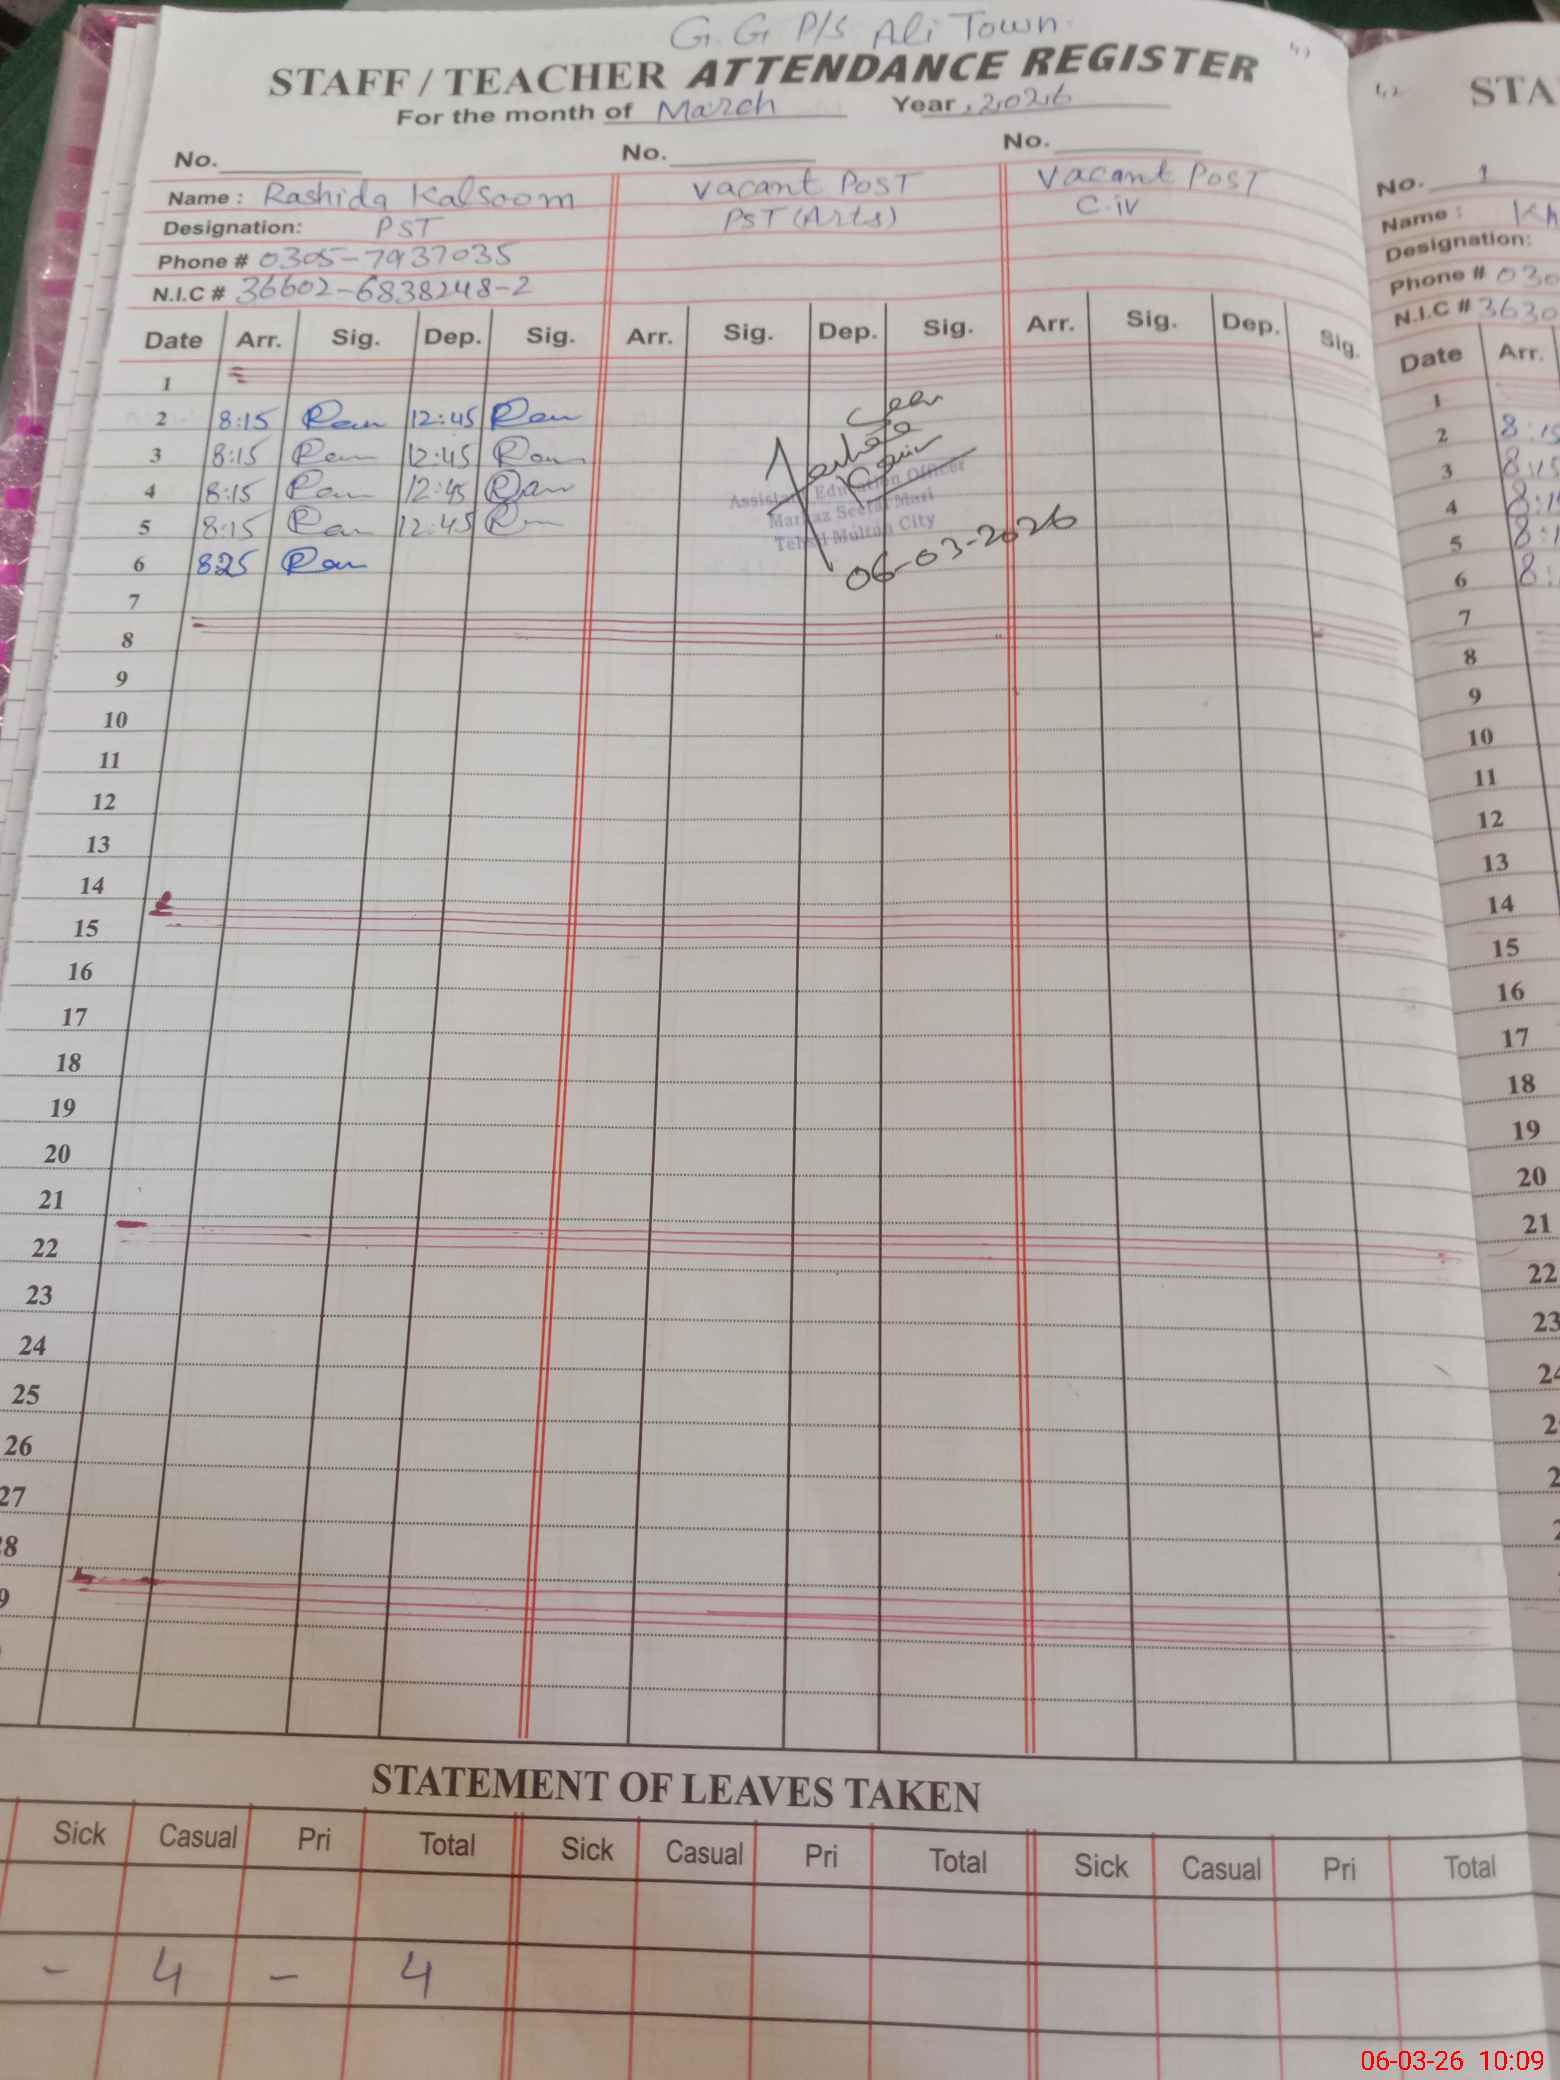 G.G P/S Ali Town
41
STAFF / TEACHER ATTENDANCE REGISTER
For the month of March Year 2026
No. No. No.
Name : Rashida Kalsoom Vacant Post Vacant Post
Designation: PST PST (Arts) C.iv
Phone # 0305-7937035
N.I.C # 36602-6838248-2
Date Arr. Sig. Dep. Sig. Arr. Sig. Dep. Sig. Arr. Sig. Dep. Sig.
1
2 8:15 12:45 Seen
3 8:15 12:45
4 8:15 12:45
5 8:15 12:45
6 825
Assistant Education Officer
Markaz Seetal Mari
Tehsil Multan City
06-03-2026
7
8
9
10
11
12
13
14
15
16
17
18
19
20
21
22
23
24
25
26
27
28
9
STATEMENT OF LEAVES TAKEN
Sick Casual Pri Total Sick Casual Pri Total Sick Casual Pri Total
- 4 - 4
42 STA
No. 1
Name : Kh
Designation:
Phone # 030
N.I.C # 3630
Date Arr.
1
2 8:15
3 8:15
4 8:1
5 8:1
6 8:
7
8
9
10
11
12
13
14
15
16
17
18
19
20
21
22
23
24
2
2
2
06-03-26 10:09